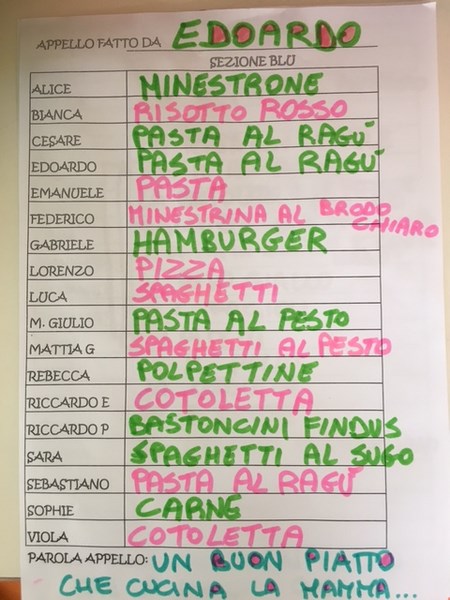 APPELLO FATTO DA EDOARDO
SEZIONE BLU
ALICE MINESTRONE
BIANCA RISOTTO ROSSO
CESARE PASTA AL RAGÙ
EDOARDO PASTA AL RAGÙ
EMANUELE PASTA
FEDERICO MINESTRINA AL BRODO CHIARO
GABRIELE HAMBURGER
LORENZO PIZZA
LUCA SPAGHETTI
M. GIULIO PASTA AL PESTO
MATTIA G SPAGHETTI AL PESTO
REBECCA POLPETTINE
RICCARDO E COTOLETTA
RICCARDO P BASTONCINI FINDUS
SARA SPAGHETTI AL SUGO
SEBASTIANO PASTA AL RAGÙ
SOPHIE CARNE
VIOLA COTOLETTA
PAROLA APPELLO: UN BUON PIATTO
CHE CUCINA LA MAMMA...